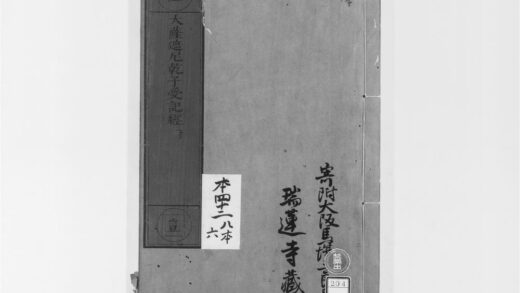 寄附大阪馬
瑞蓮寺藏
大薩遮尼乾子受記經
本四十二八本
六